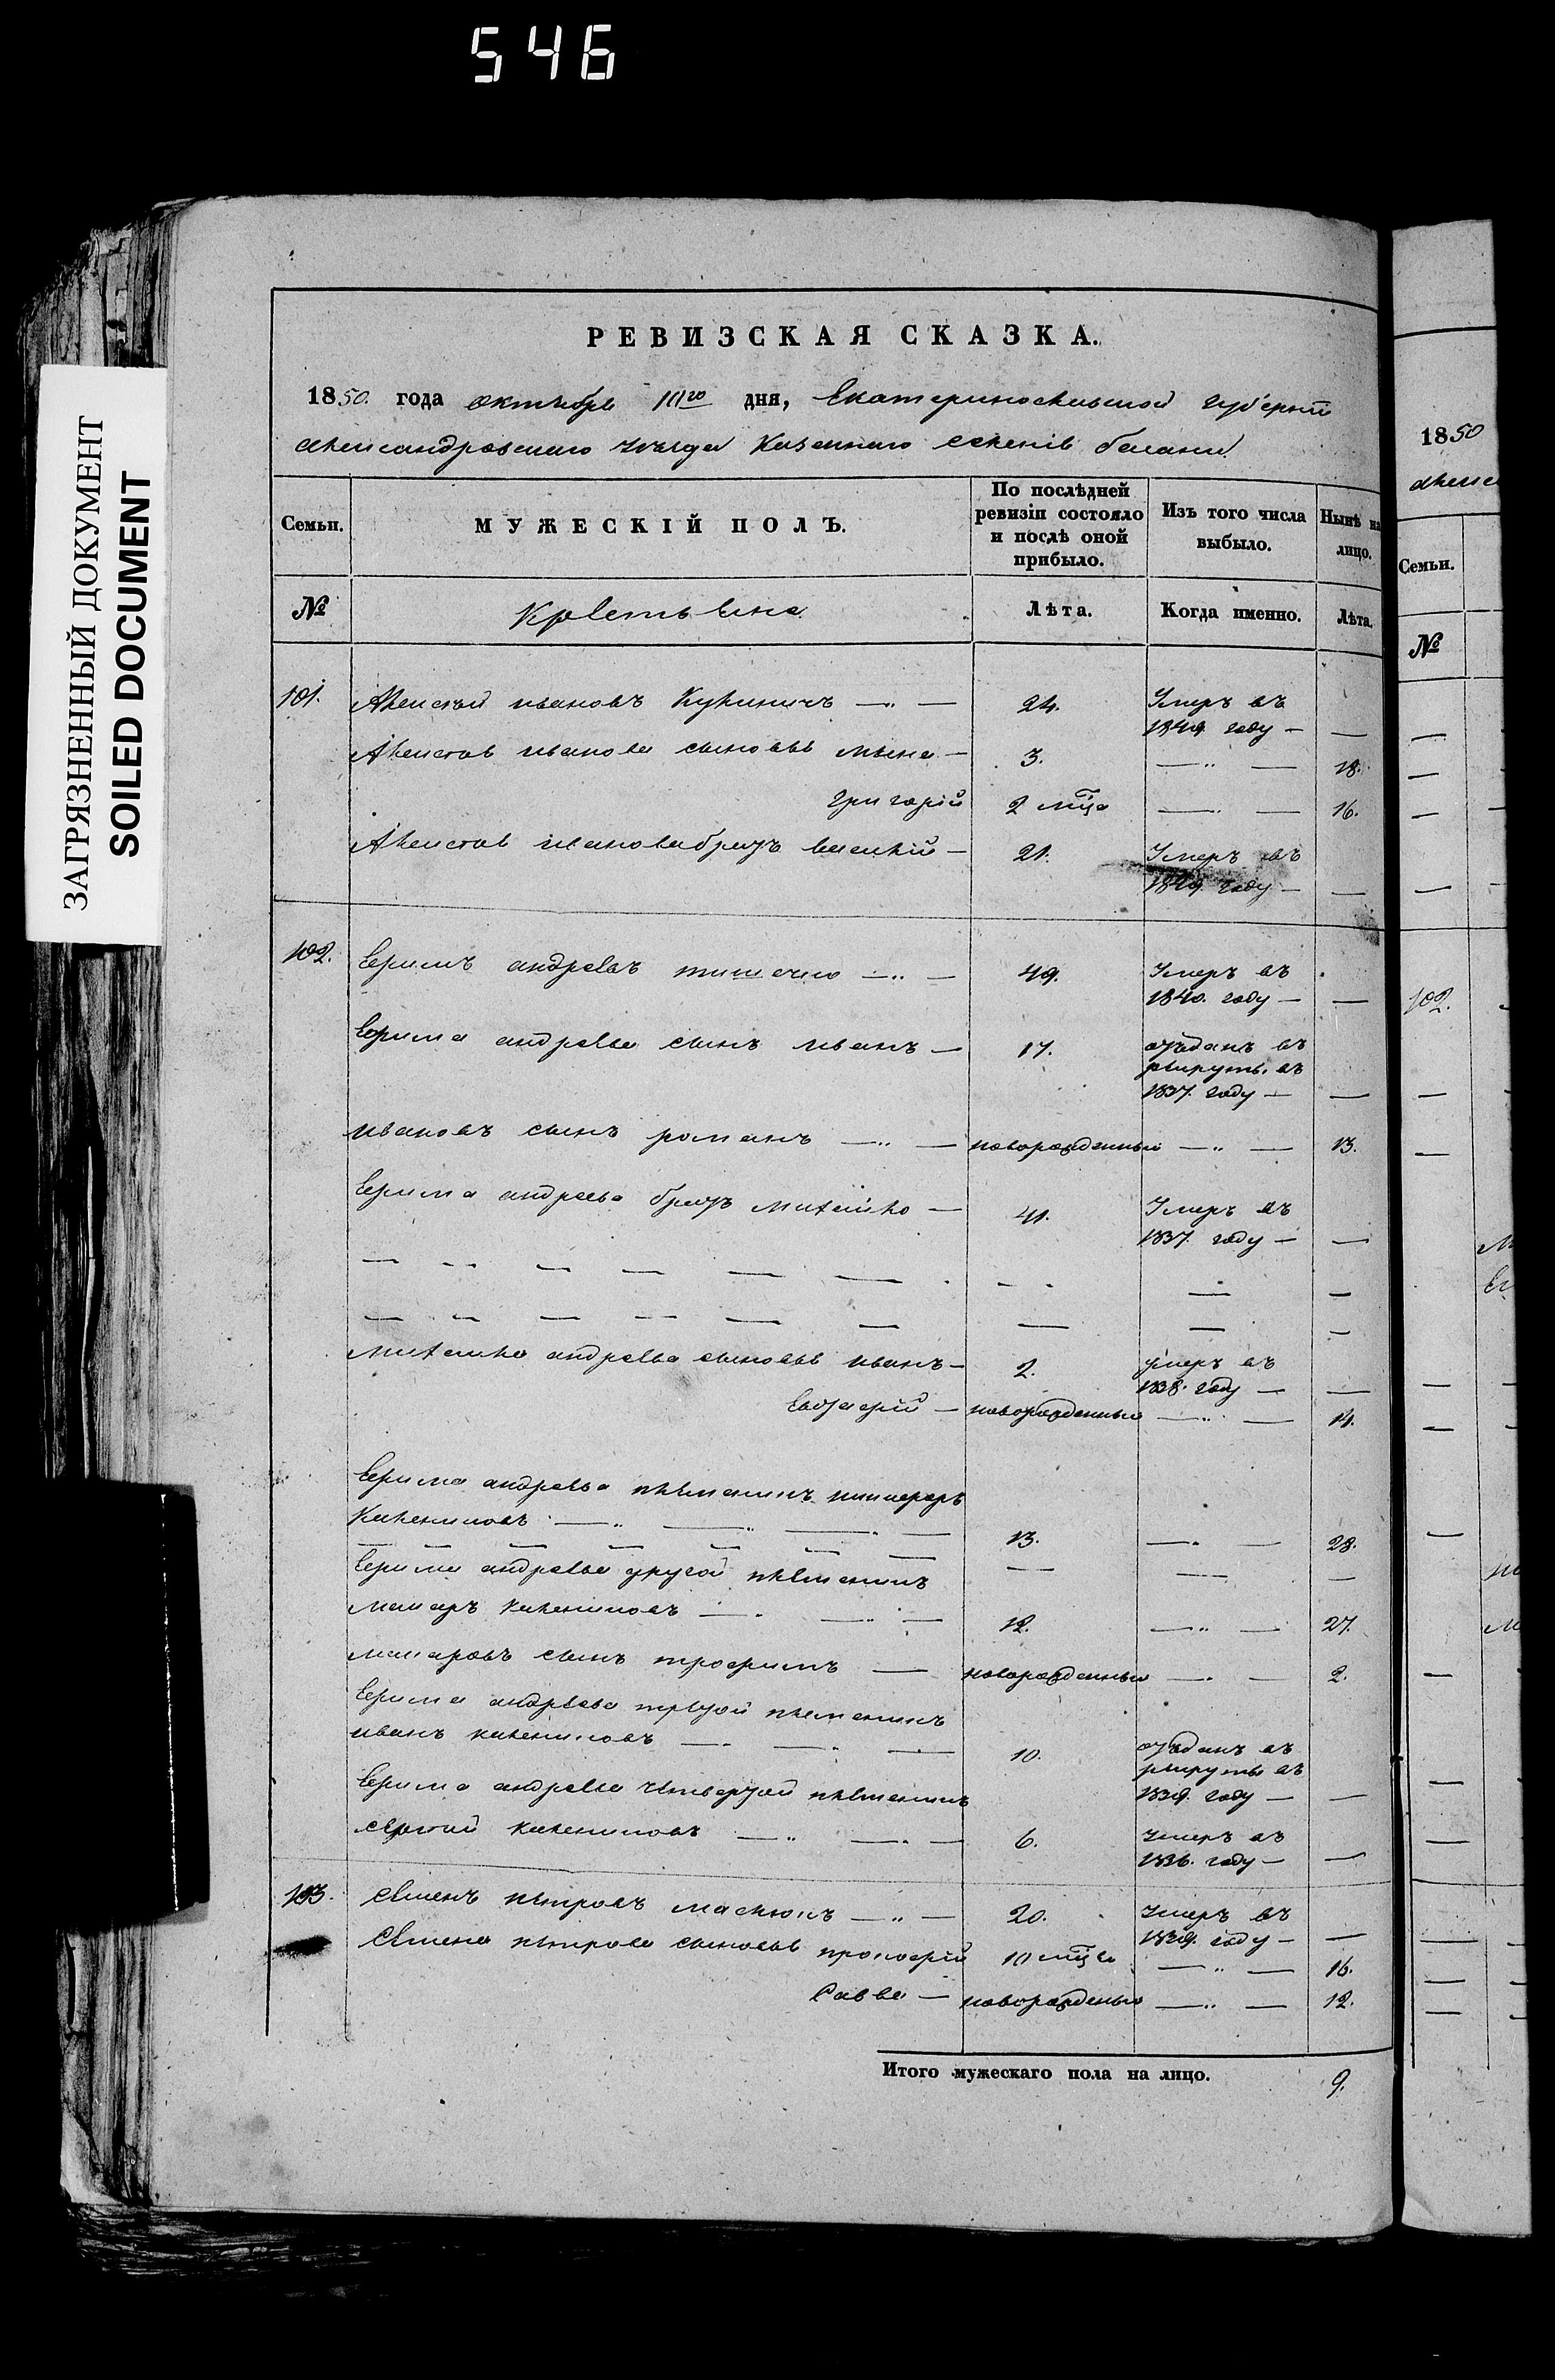 546
ЗАГРЯЗНЕННЫЙ ДОКУМЕНТ
SOILED DOCUMENT
РЕВИЗСКАЯ СКАЗКА.
1850. года октября дня, Екатеринославской губернїи
Александровскаго уезда Казеннаго селенїя
Семьи. МУЖЕСКІЙ ПОЛЪ. По послѣдней ревизіи состояло и послѣ оной прибыло. Изъ того числа выбыло. Нынѣ на лицо.
№ Лѣта. Когда именно. Лѣта.
101. Алексѣй ивановъ — „ — 24. Умеръ въ
1849 году — —
Алексѣя иванова сыновья — 3. — „ — 18.
григорїй 2 мца — „ — 16.
Алексѣя иванова братъ василїй — 21. Умеръ въ
1849 году — —
102. Ефимъ андреевъ тимечко — „ — 49. Умеръ въ
1840. году — —
Ефима андреева сынъ иванъ — 17. отъданъ въ
рекруты въ
1837. году — —
ивановъ сынъ романъ — „ — новорожденный — „ — 13.
Ефима андреева братъ михайло — 41. Умеръ въ
1837. году — —
михайла андреева сыновья иванъ — 2. умеръ въ
1838. году — —
Евстафїй — новорожденный — „ — 14.
Ефима андреева племянникъ никифоръ
— „ — „ — „ — 13. — „ — 28.
Ефима андреева другой племянникъ
макаръ — „ — „ — 12. — „ — 27.
макаровъ сынъ трофимъ — новорожденный — „ — 2.
Ефима андреева третой племянникъ
иванъ — „ — „ — 10. отъданъ въ
рекруты въ
1839. году — —
Ефима андреева четвертой племянникъ
сергїй — „ — „ — 6. Умеръ въ
1836. году — —
103. Семенъ петровъ масюкъ — „ — 20. Умеръ въ
1839. году — —
Семена петрова сыновья прокофїй 10 мцевъ — „ — 16.
Савва — новорожденый — „ — 12.
Итого мужескаго пола на лицо. 9.
1850
Семьи.
№
102.